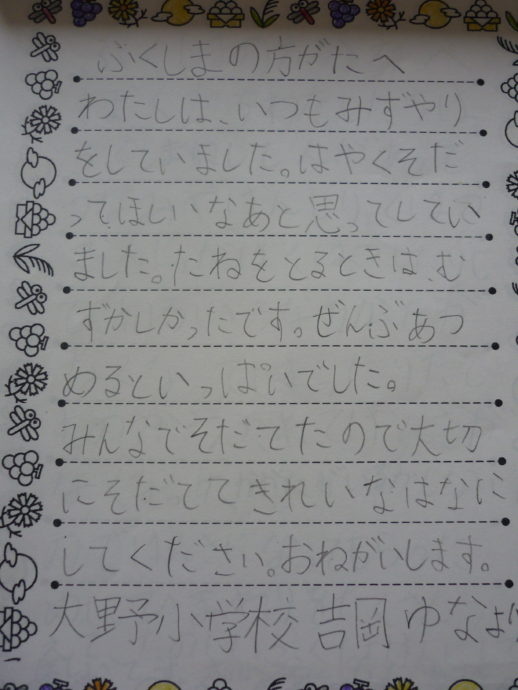 ふくしまの方がたへ
わたしは、いつもみずやり
をしていました。はやくそだ
ってほしいなあと思ってしてい
ました。たねをとるときは、む
ずかしかったです。ぜんぶあつ
めるといっぱいでした。
みんなでそだてたので大切
にそだててきれいなはなに
してください。おねがいします。
大野小学校 吉岡 ゆなより